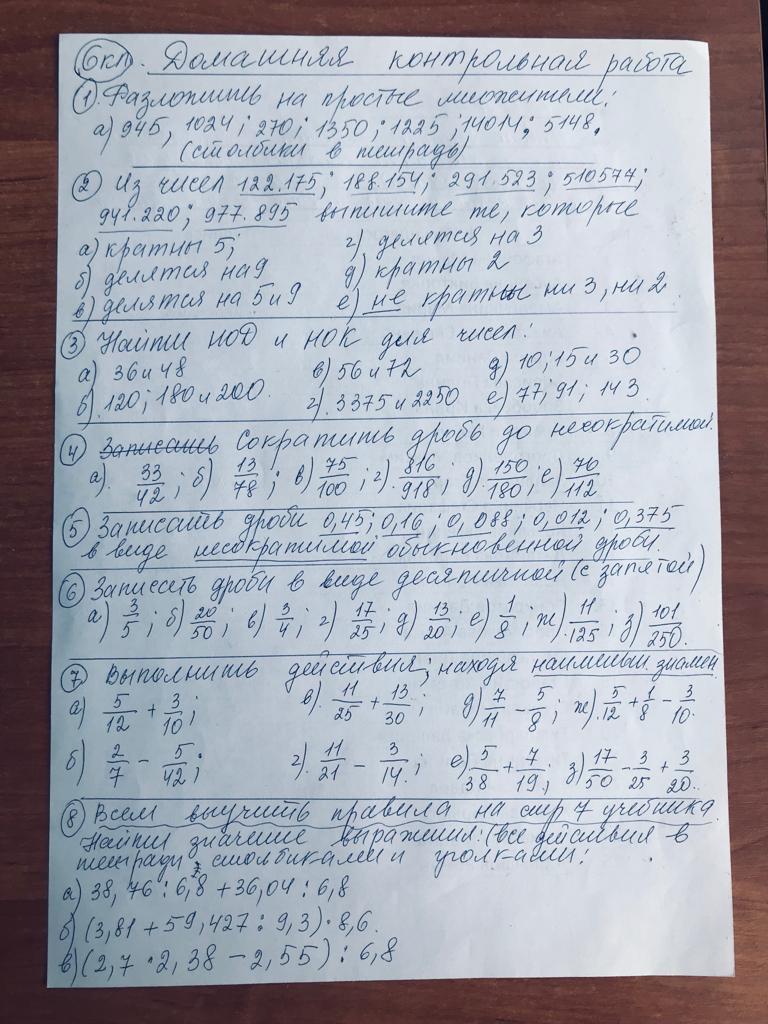 6кл. Домашняя контрольная работа
① Разложить на простые множители:
а) 945, 1024; 270; 1350; 1225; 14014; 5148.
(столбики в тетрадь)
② Из чисел 122.175; 188.154; 291.523; 510574;
941.220; 977.895 выпишите те, которые
а) кратны 5; г) делятся на 3
б) делятся на 9 д) кратны 2
в) делятся на 5 и 9 е) не кратны ни 3, ни 2
③ Найти НОД и НОК для чисел:
а) 36 и 48 в) 56 и 72 д) 10; 15 и 30
б) 120; 180 и 200. г) 3375 и 2250 е) 77; 91; 143
④ Записать Сократить дробь до несократимой.
а). 33/42; б) 13/78; в) 75/100; г). 816/918; д) 150/180; е) 70/112
⑤ Записать дроби 0,45; 0,16; 0,088; 0,012; 0,375
в виде несократимой обыкновенной дроби.
⑥ Записать дроби в виде десятичной (с запятой)
а) 3/5; б) 20/50; в) 3/4; г) 17/25; д) 13/20; е) 1/8; ж) 11/125; з) 101/250.
⑦ Выполнить действия; находя наименьш. знамен.
а) 5/12 + 3/10; в). 11/25 + 13/30; д) 7/11 - 5/8; ж). 5/12 + 1/8 - 3/10.
б) 2/7 - 5/42; г). 11/21 - 3/14; е) 5/38 + 7/19; з) 17/50 - 3/25 + 3/20.
⑧ Всем выучить правила на стр 7 учебника.
Найти значение выражения: (все действия в
тетради столбиками и уголками:
а) 38,76 : 6,8 + 36,04 : 6,8
б) (3,81 + 59,427 : 9,3) · 8,6.
в) (2,7 · 2,38 - 2,55) : 6,8